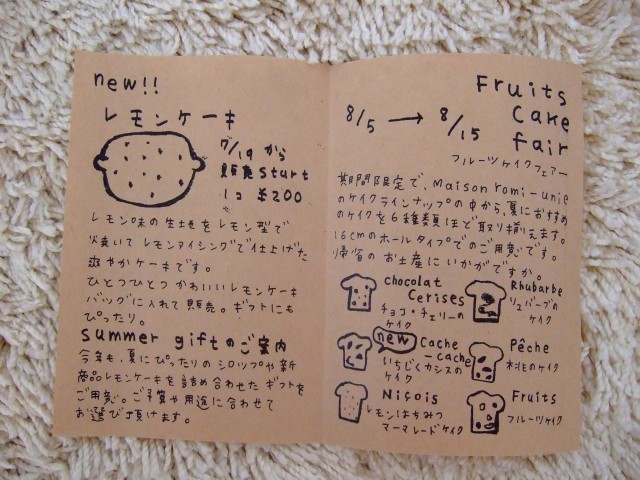 new!!
レモンケーキ
7/19 から
販売start
1コ ¥200
レモン味の生地をレモン型で
焼いてレモンアイシングで仕上げた
爽やかケーキです。
ひとつひとつかわいいレモンケーキ
バッグに入れて販売。ギフトにも
ぴったり。
summer giftのご案内
今年も、夏にぴったりのシロップや新
商品レモンケーキを詰め合わせたギフトを
ご用意。ご予算や用途に合わせて
お選び頂けます。
Fruits
Cake
fair
8/5 → 8/15
フルーツケイクフェアー
期間限定で、Maison romi-unie
のケイクラインナップの中から、夏におすすめ
のケイクを6種類ほど取り揃えます。
16cmのホールタイプでのご用意です。
帰省のお土産にいかがですか。
chocolat
Cerises
チョコ・チェリーの
ケイク
Rhubarbe
リュバーブの
ケイク
new
Cache
-cache
いちじくカシスの
ケイク
Pêche
桃のケイク
Niçois
レモンはちみつ
マーマレードケイク
Fruits
フルーツケイク